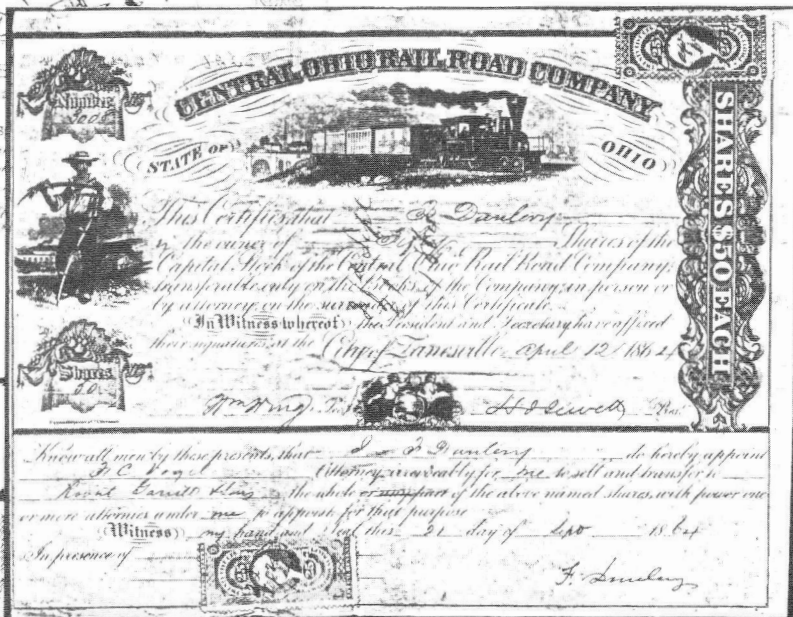 CENTRAL OHIO RAIL ROAD COMPANY
STATE OF OHIO
Number
SHARES $50 EACH
This Certifies, that F. Danbery
is the owner of Shares of the
Capital Stock of the Central Ohio Rail Road Company,
transferable only on the Books of the Company, in person or
by attorney, on the surrender of this Certificate.
In Witness whereof, the President and Secretary have affixed
their signatures, at the City of Zanesville, April 12 1864
Shares
H J Jewett Pres.
Know all men by these presents, that I F Danbery do hereby appoint
Attorney, irrevocably for me to sell and transfer to
Garrett the whole of the above named shares, with power one
or more attornies under me to appoint for that purpose
Witness my hand and Seal this 21 day of 1864
In presence of